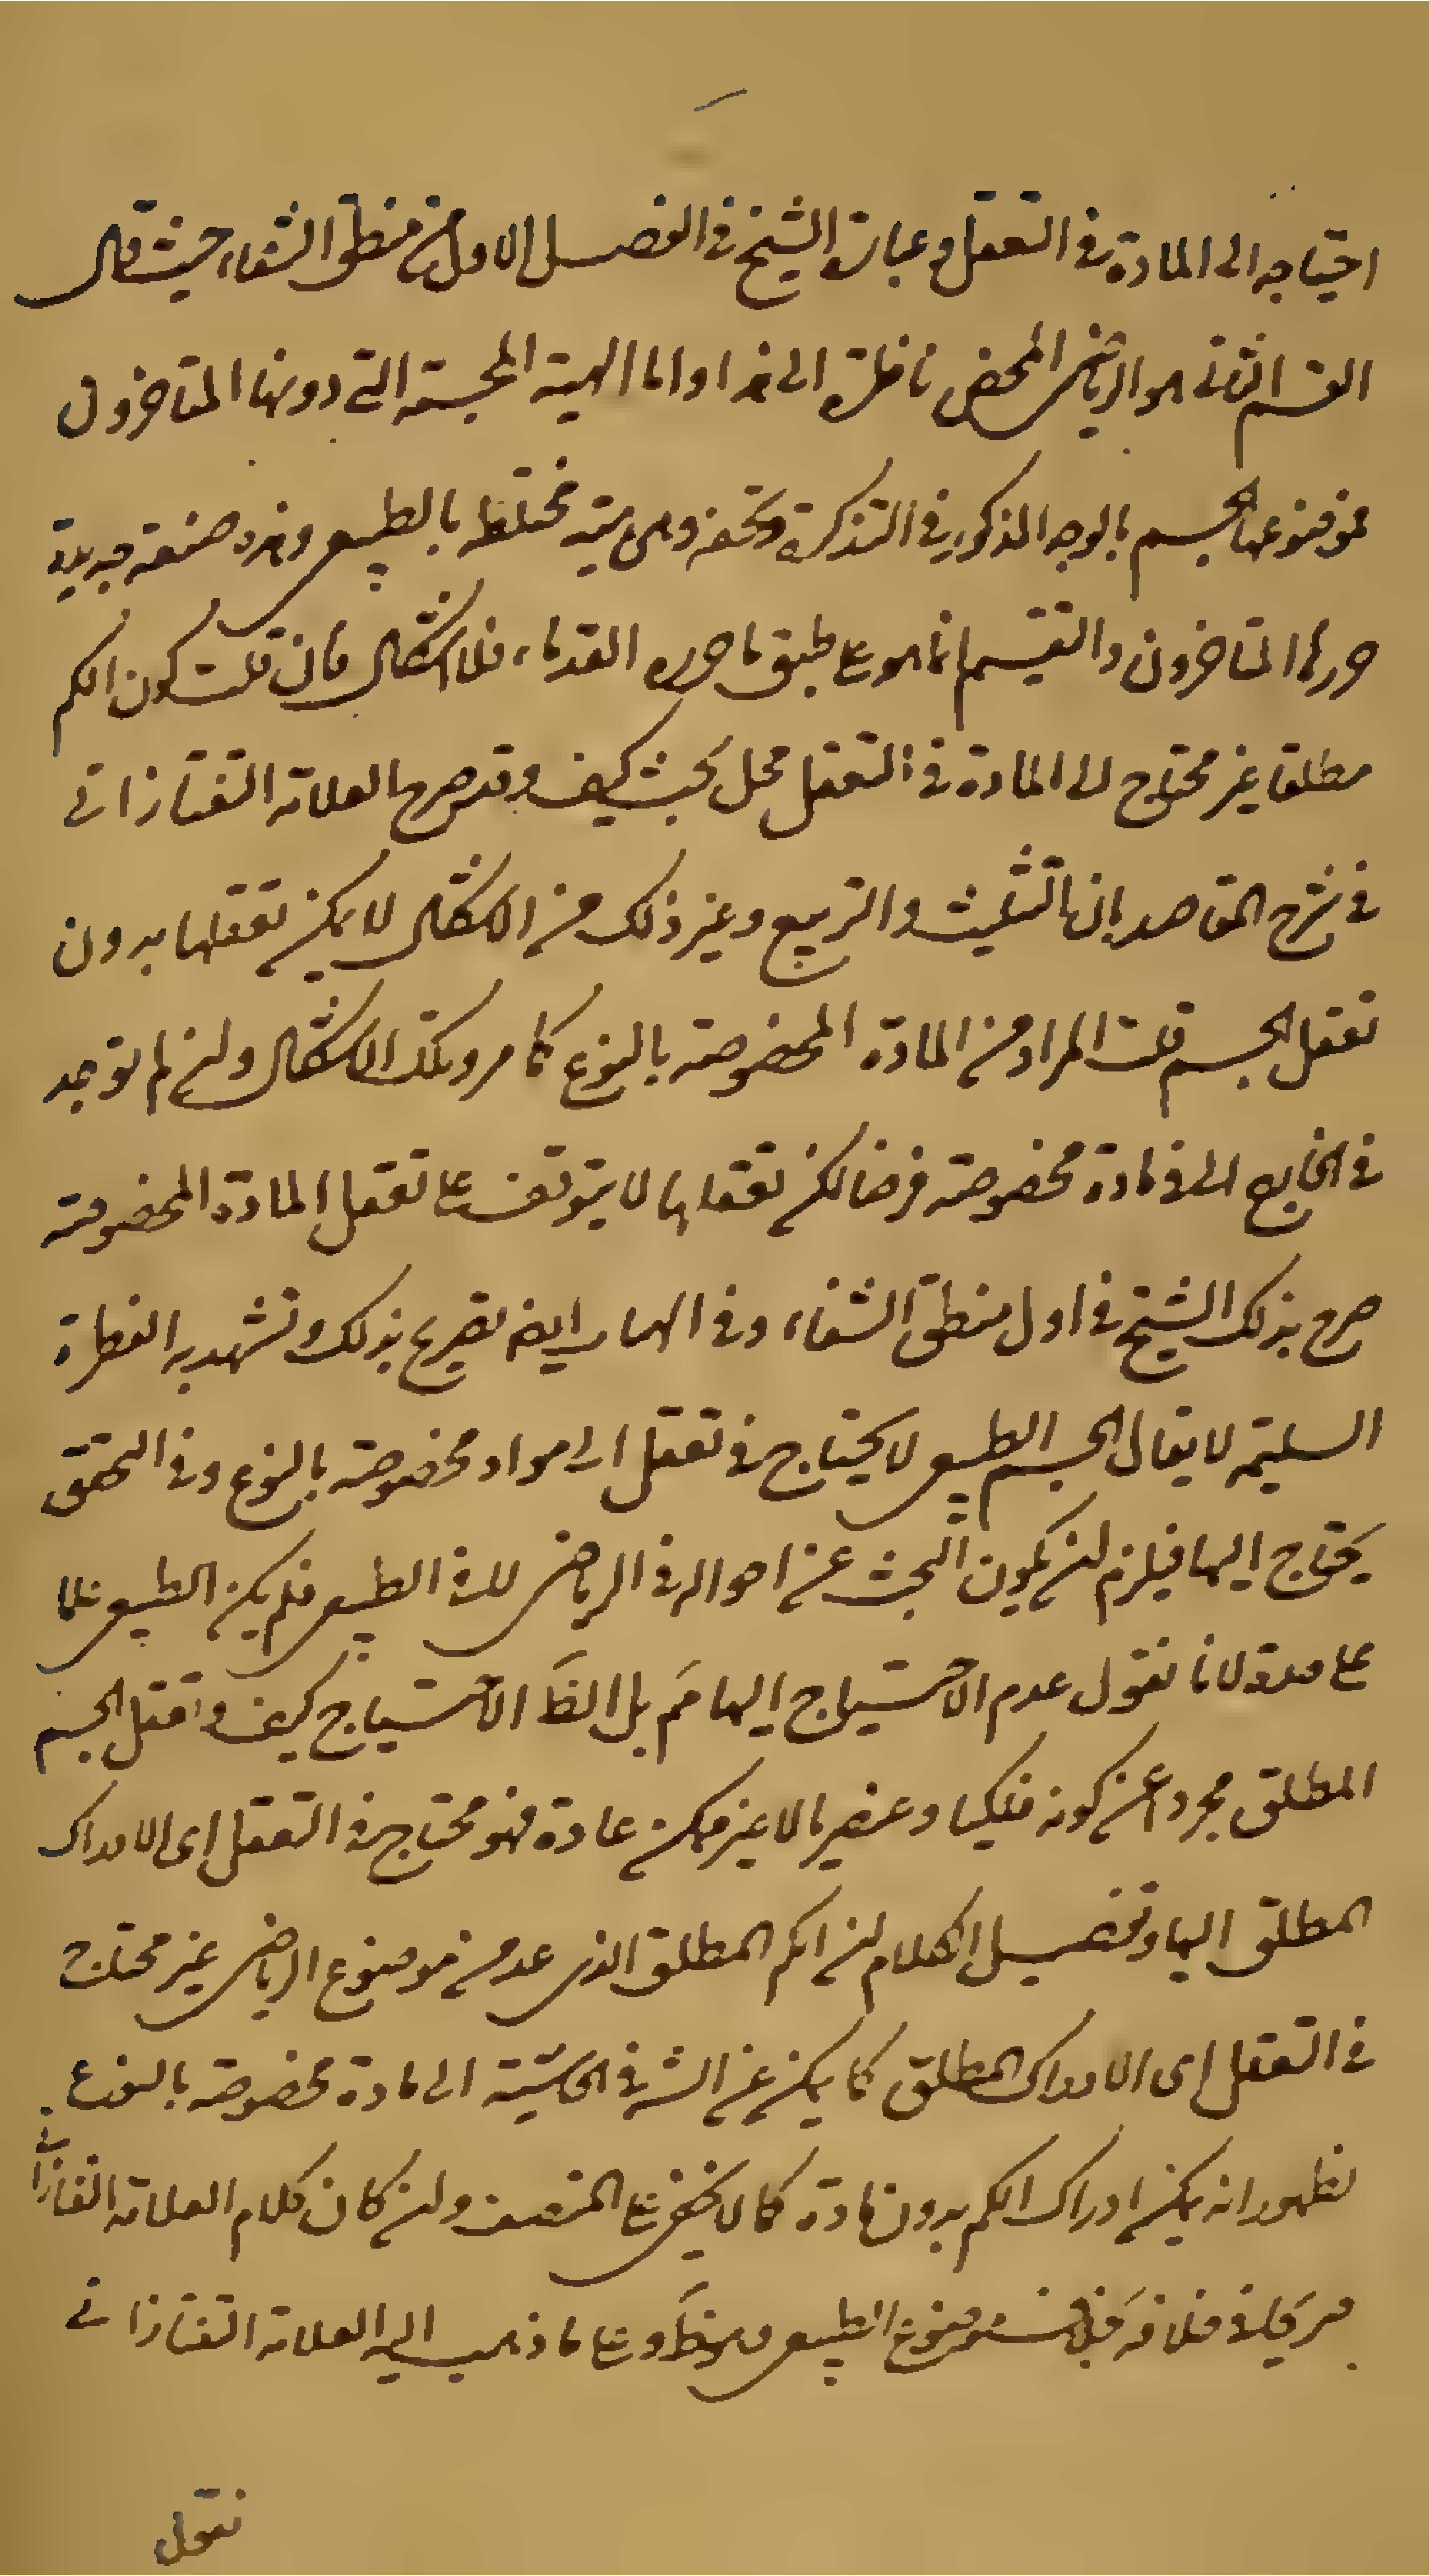 احتياجه الى المادة في التعقل وعبارة الشيخ في الفصل الاول من منطق الشفاء حيث قال
القسم الثاني هو الرياضي المحض ناظرة الى هذا واما الهيئة المجسمة التي دونها المتاخرون
فموضوعها الجسم بالوجه المذكور في التذكرة وتحفه وهي هيئة مختلطه بالطبيعي وهذه صنعة جديدة
حررها المتاخرون والتقسيم انما هو على طبق ما حرره القدماء فلا اشكال فان قلت كون الكم
مطلقا غير محتاج الى المادة في التعقل محل بحث كيف وقد صرح العلامة التفتازاني
في شرح المقاصد بان التثليث والتربيع وغير ذلك من الاشكال لا يمكن تعقلها بدون
تعقل الجسم قلت المراد من المادة المخصوصة بالنوع كما مر وتلك الاشكال وان لم توجد
في الخارج الا في مادة مخصوصة فرضا لكن تعقلها لا يتوقف على تعقل المادة المخصوصة
صرح بذلك الشيخ في اول منطق الشفاء وفي الهيات ايضا تصريح بذلك وتشهد به الفطرة
السليمة لا يقال الجسم الطبيعي لا يحتاج في تعقل الى مواد مخصوصة بالنوع وفي التحقق
يحتاج اليها فيلزم ان يكون البحث عن احواله في الرياضي لا في الطبيعي فلم يكن الطبيعي علما
على حدة لانا نقول عدم الاحتياج اليها مم بل الظ الاحتياج كيف وتعقل الجسم
المطلق مجردا عن كونه فلكيا وعنصريا لا غير ممكن عادة فهو محتاج في التعقل اى الادراك
المطلق اليها وتفصيل الكلام ان الكم المطلق الذى عد من موضوع الرياضي غير محتاج
في التعقل اى الادراك المطلق كما يمكن عن الشـ في الحاشية الى مادة مخصوصة بالنوع
لظهور انه يمكن ادراك الكم بدون مادة كما لا يخفى على المنصف وان كان كلام العلامة التفتازاني
موضوع الطبيعي على ما ذهب اليه العلامة التفتازاني
نقول